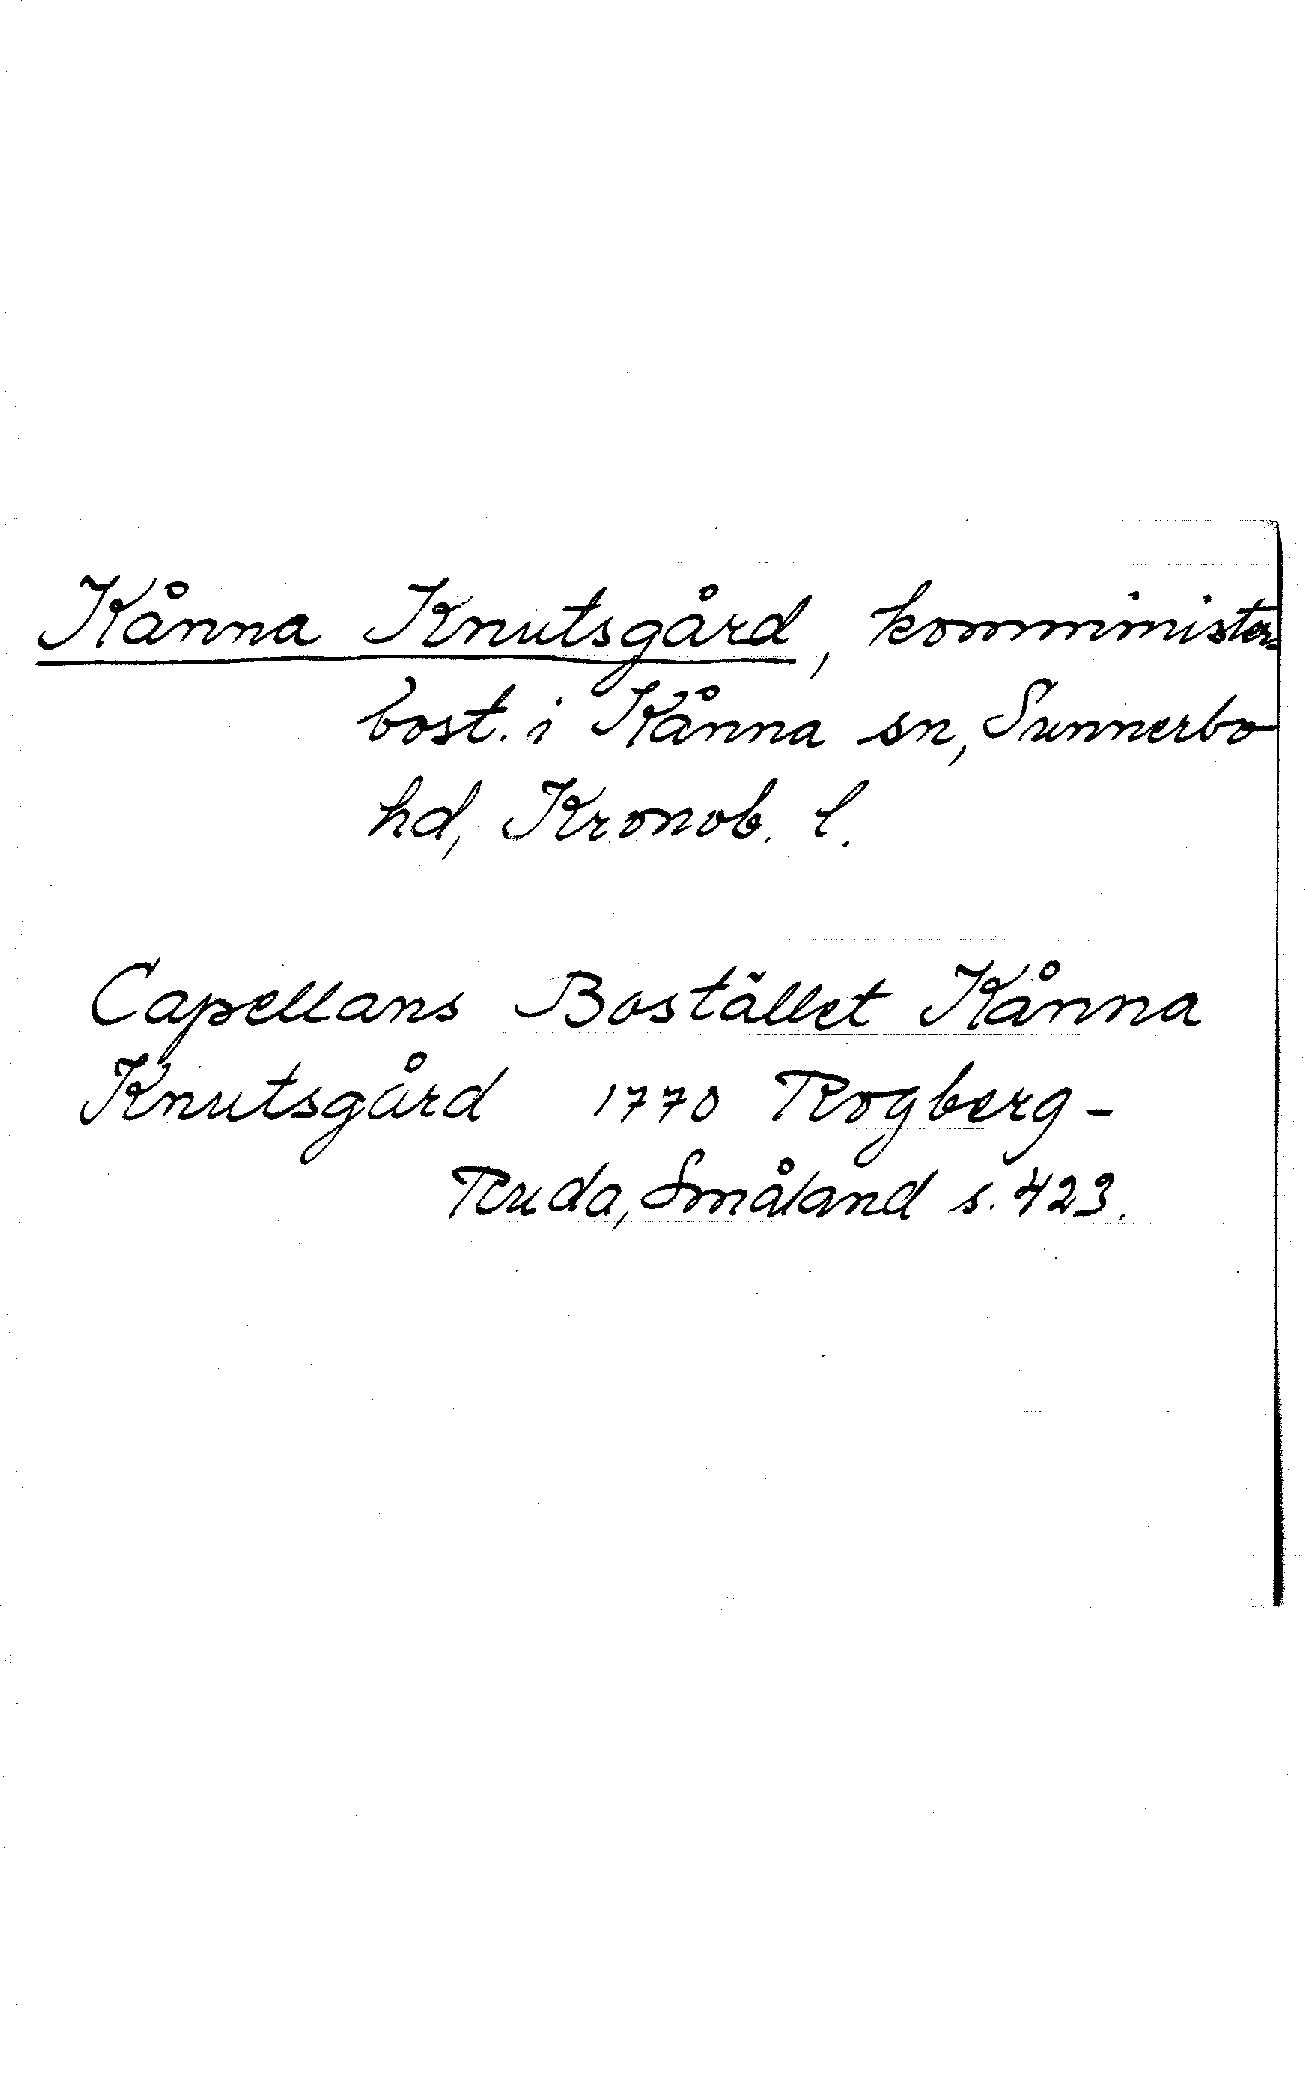 Kånna Knutsgård, komminister
bost. i Kånna sn, Sunnerbo
hd, Kronob. l.
Capellans Bostället Kånna
Knutsgård 1770 Rogberg-
Ruda, Småland s. 423.